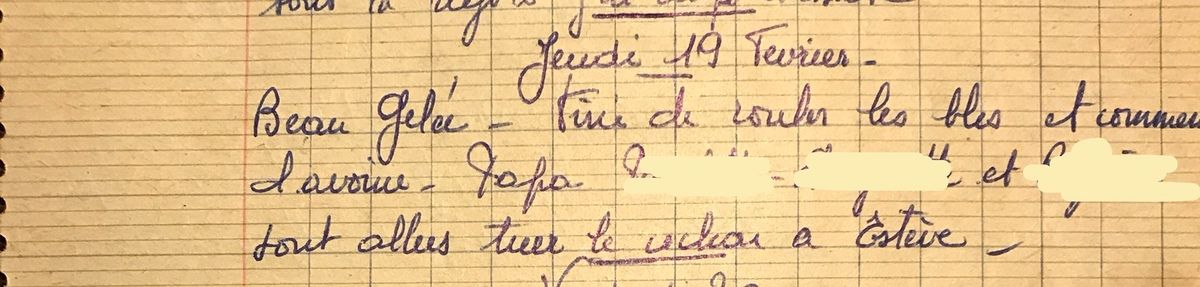 Jeudi 19 Fevrier -
Beau Gelée - Fini de rouler les bles et commen
d'avoine - Papa et
sont allés tuer le cochon a Estève -